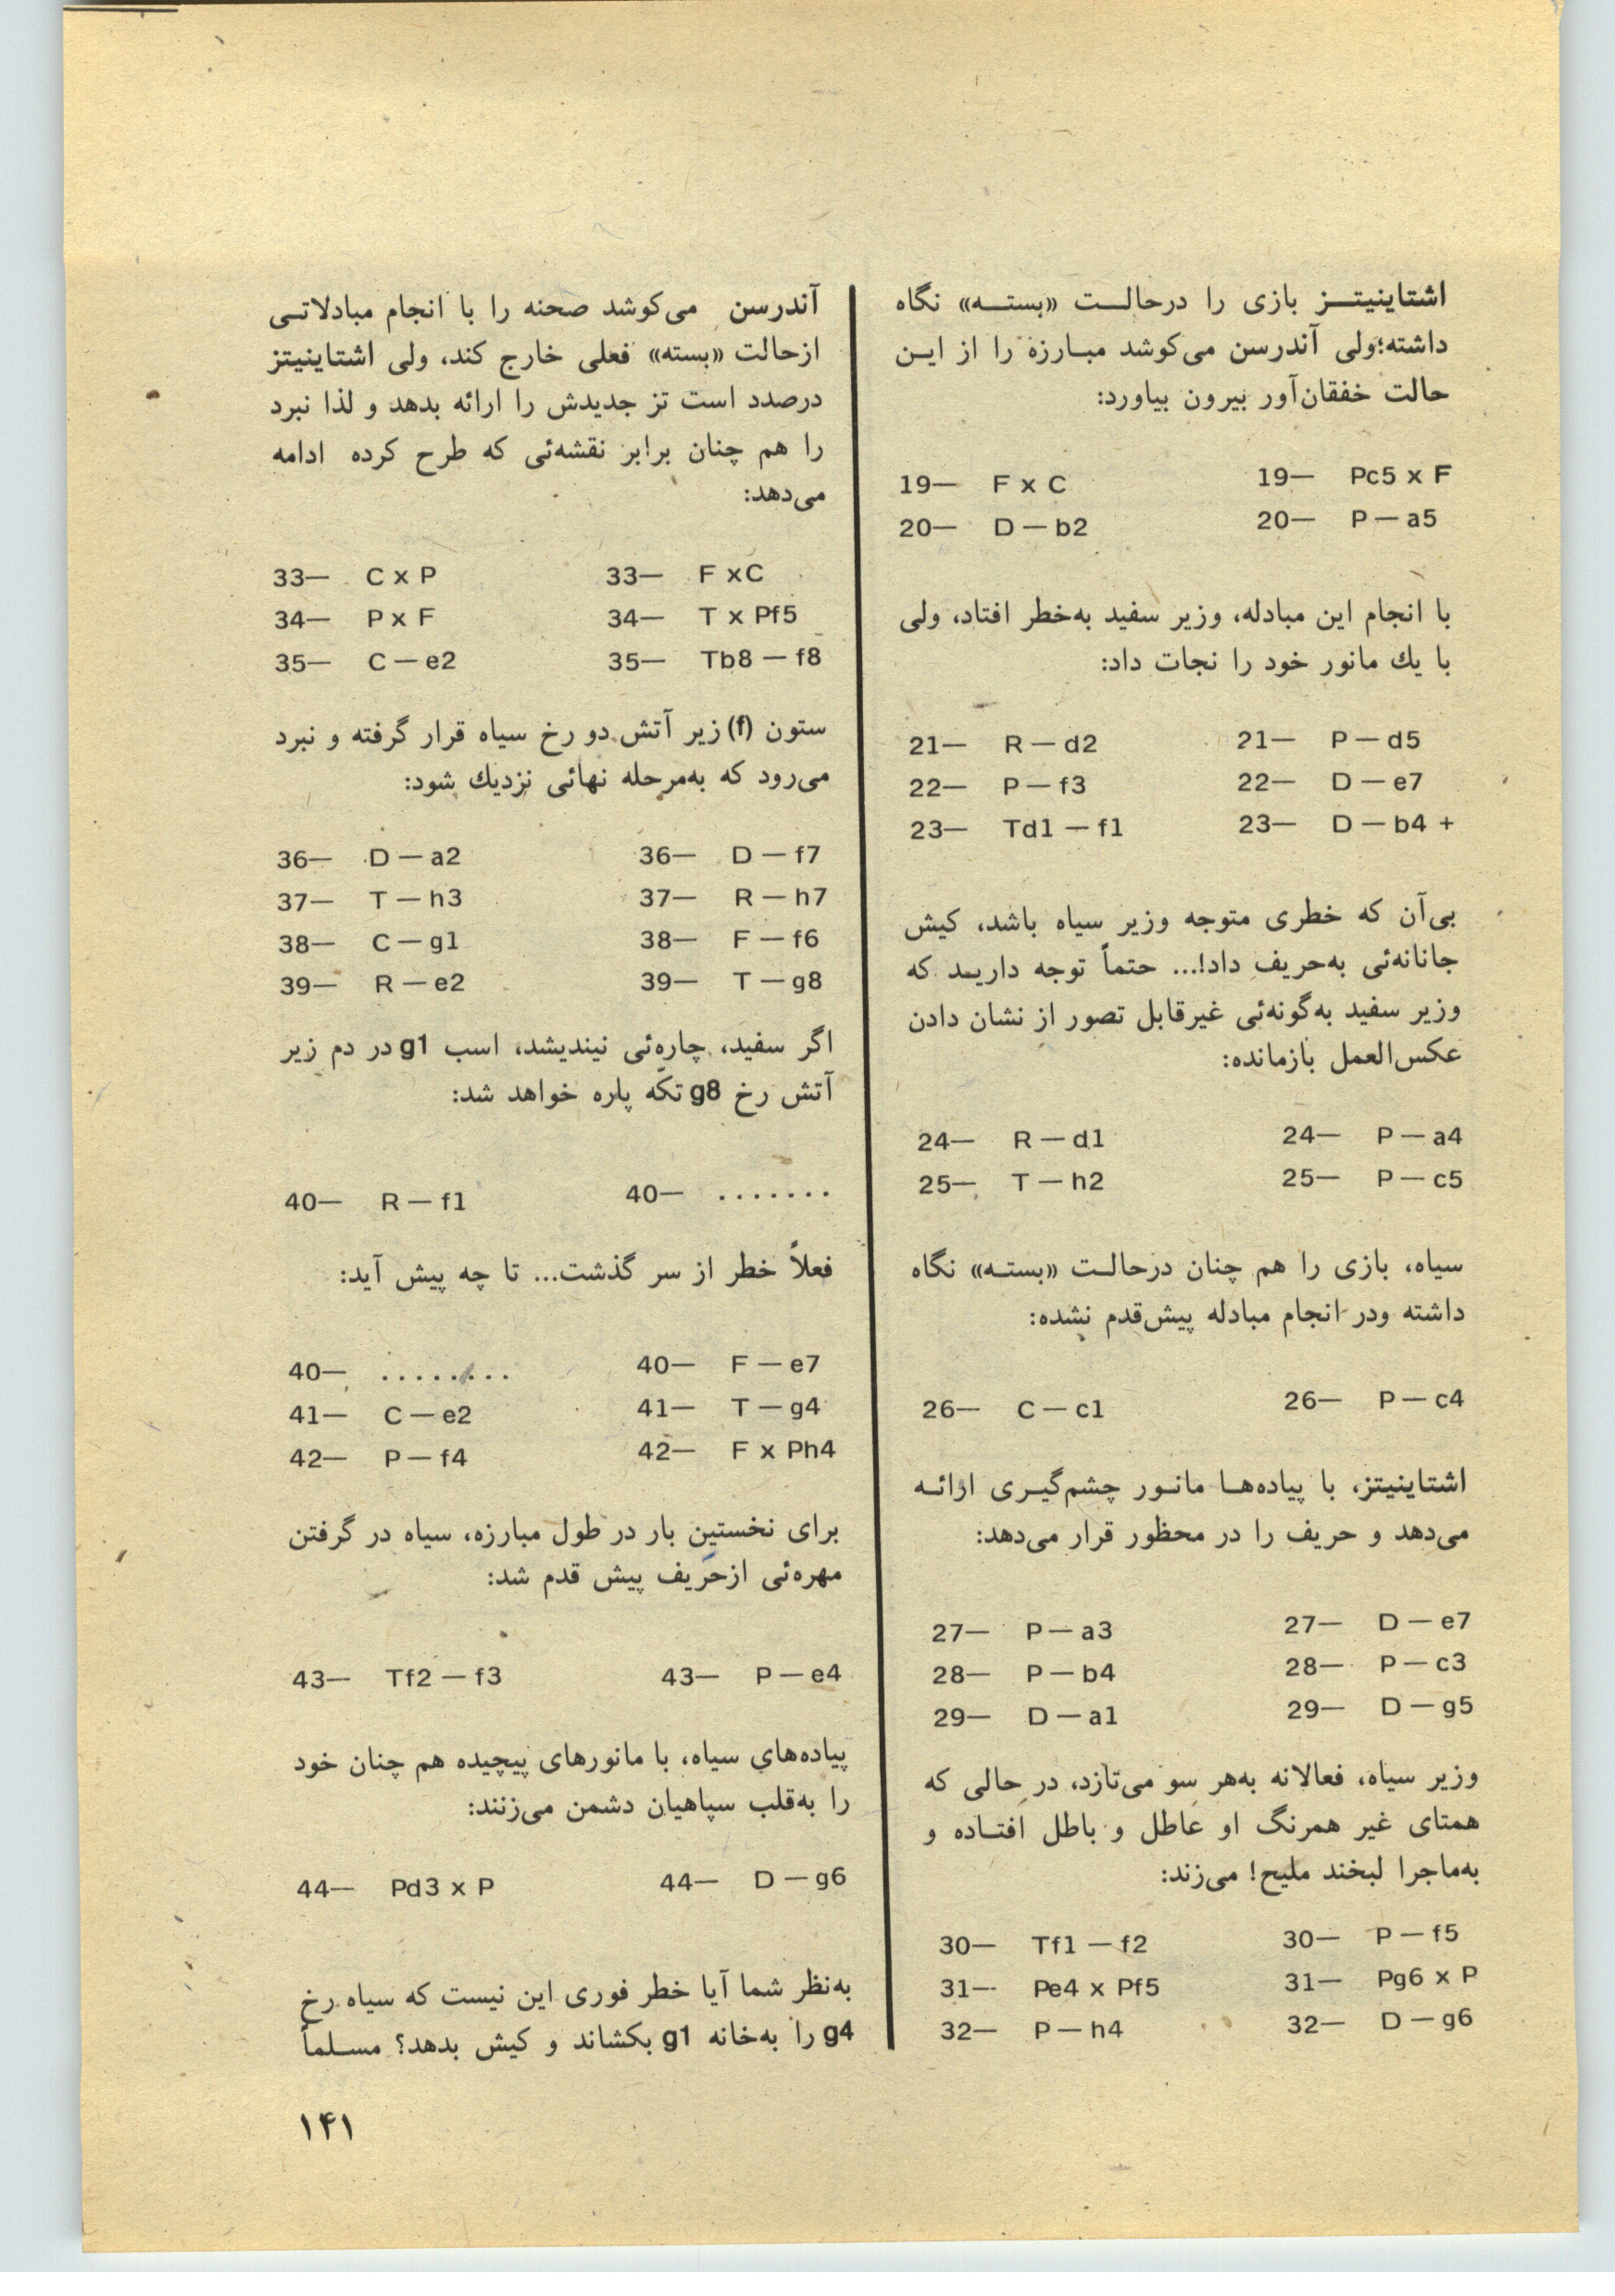 اشتاینیتـــز بازی را درحالـــت «بستـــه» نگاه
داشته؛ولی آندرسن می‌کوشد مبـارزه را از ایـن
حالت خفقان‌آور بیرون بیاورد:
19— F x C 19— Pc5 x F
20— D — b2 20— P — a5
با انجام این مبادله، وزیر سفید به‌خطر افتاد، ولی
با یك مانور خود را نجات داد:
21— R — d2 21— P — d5
22— P — f3 22— D — e7
23— Td1 — f1 23— D — b4 +
بی‌آن که خطری متوجه وزیر سیاه باشد، کیش
جانانه‌ئی به‌حریف داد!... حتماً توجه داریـد که
وزیر سفید به‌گونه‌ئی غیرقابل تصور از نشان دادن
عکس‌العمل بازمانده:
24— R — d1 24— P — a4
25— T — h2 25— P — c5
سیاه، بازی را هم چنان درحالـت «بستـه» نگاه
داشته ودر انجام مبادله پیش‌قدم نشده:
26— C — c1 26— P — c4
اشتاینیتز، با پیاده‌هـا مانـور چشم‌گیـری ارائـه
می‌دهد و حریف را در محظور قرار می‌دهد:
27— P — a3 27— D — e7
28— P — b4 28— P — c3
29— D — a1 29— D — g5
وزیر سیاه، فعالانه به‌هر سو می‌تازد، در حالی که
همتای غیر همرنگ او عاطل و باطل افتـاده و
به‌ماجرا لبخند ملیح! می‌زند:
30— Tf1 — f2 30— P — f5
31— Pe4 x Pf5 31— Pg6 x P
32— P — h4 32— D — g6
آندرسن می‌کوشد صحنه را با انجام مبادلاتـی
ازحالت «بسته» فعلی خارج کند، ولی اشتاینیتز
درصدد است تز جدیدش را ارائه بدهد و لذا نبرد
را هم چنان برابر نقشه‌ئی که طرح کرده ادامه
می‌دهد:
33— C x P 33— F xC
34— P x F 34— T x Pf5
35— C — e2 35— Tb8 — f8
ستون (f) زیر آتش دو رخ سیاه قرار گرفته و نبرد
می‌رود که به‌مرحله نهائی نزدیك شود:
36— D — a2 36— D — f7
37— T — h3 37— R — h7
38— C — g1 38— F — f6
39— R — e2 39— T — g8
اگر سفید، چاره‌ئی نیندیشد، اسب g1 در دم زیر
آتش رخ g8 تکّه پاره خواهد شد:
40— R — f1 40— .......
فعلاً خطر از سر گذشت... تا چه پیش آید:
40— ........ 40— F — e7
41— C — e2 41— T — g4
42— P — f4 42— F x Ph4
برای نخستین بار در طول مبارزه، سیاه در گرفتن
مهره‌ئی ازحریف پیش قدم شد:
43— Tf2 — f3 43— P — e4
پیاده‌های سیاه، با مانورهای پیچیده هم چنان خود
را به‌قلب سپاهیان دشمن می‌زنند:
44— Pd3 x P 44— D — g6
به‌نظر شما آیا خطر فوری این نیست که سیاه رخ
g4 را به‌خانه g1 بکشاند و کیش بدهد؟ مسـلماً
۱۴۱